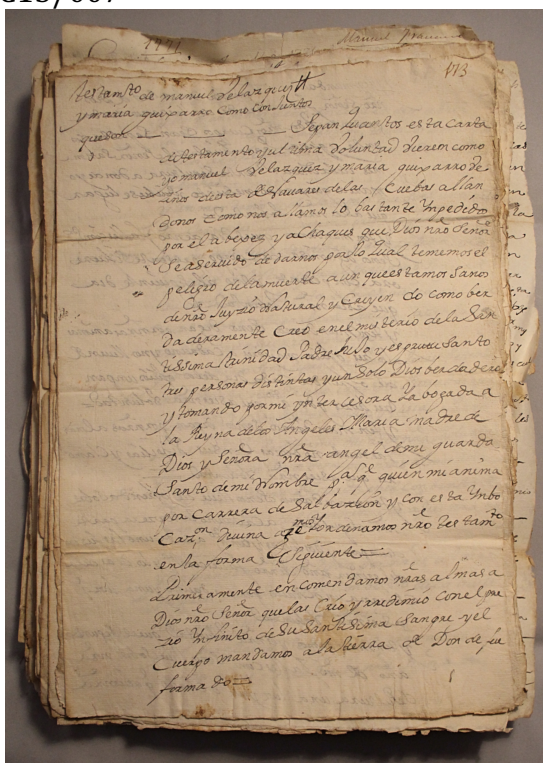 113
testamto de manuel Velazquez
y maria quixarro como consiortes
que son
Sepan quantos esta Carta
de testamento y ultima Voluntad vieren como
yo manuel Velazquez y maria quixarro de
Linares de las Cuebas allan
donos como nos allamos lo bastante Ynpedidos
por el a bejez y achaques que Dios nro Señor
Se a Serbido de darnos por lo qual tememos el
peligro de la muerte aunque estamos Sanos
de nro Juyzio Natural y Creyendo como ber
daderamente Creo en el misterio de la San
tissima trinidad Padre hijo y espiritu Santo
tres personas distintas y un Solo Dios berdadero
y tomando por mi yntercesora y abogada a
la Reyna de los Angeles Maria madre de
Dios y Señora nra angel de mi guarda
Santo de mi nombre pa q guien mi anima
por Carrera de Salbazion y con esta Ynbo
Cazon Divina ordenamos nro testamto
en la forma Siguiente
Primeramente encomendamos nras almas a
Dios nro Señor que las Crio y rredimio con el pre
zio Ynfinito de Su Santisima Sangre y el
Cuerpo mandamos a la tierra de Donde fue
formado